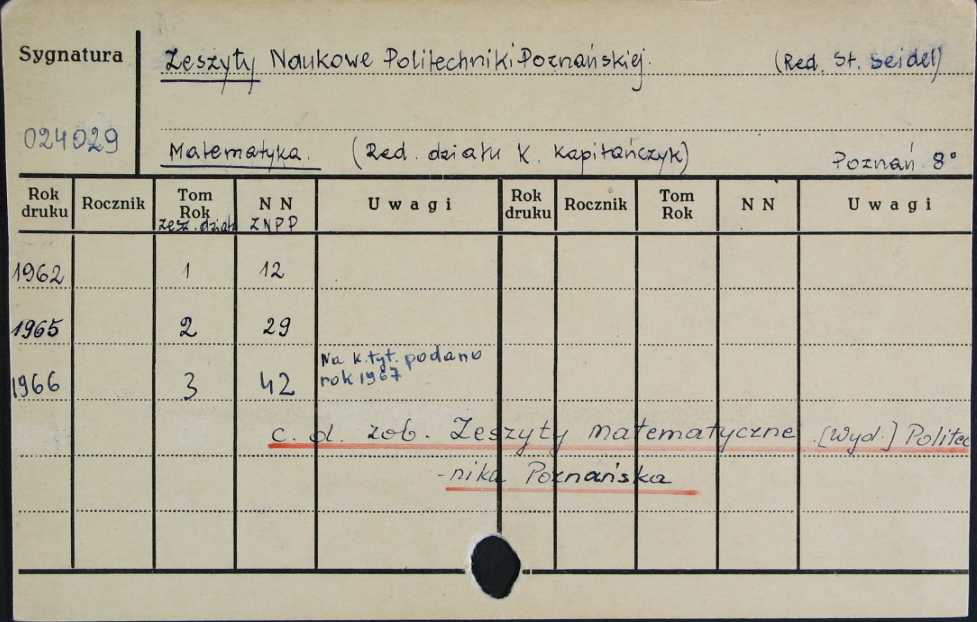 Sygnatura
Zeszyty Naukowe Politechniki Poznańskiej. (Red. St. Seidel)
024029
Matematyka. (Red. działu K. Kapitańczyk) Poznań 8°
Rok druku Rocznik Tom Rok N N Uwagi Rok druku Rocznik Tom Rok N N Uwagi
zesz. działu ZNPP
1962 1 12
1965 2 29
1966 3 42 Na k. tyt. podano
rok 1967
c. d. zob. Zeszyty matematyczne. [Wyd.] Politec
-nika Poznańska